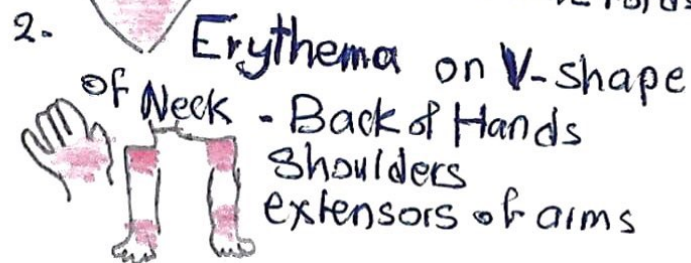 2. Erythema on V-shape
of Neck - Back of Hands
Shoulders
extensors of arms